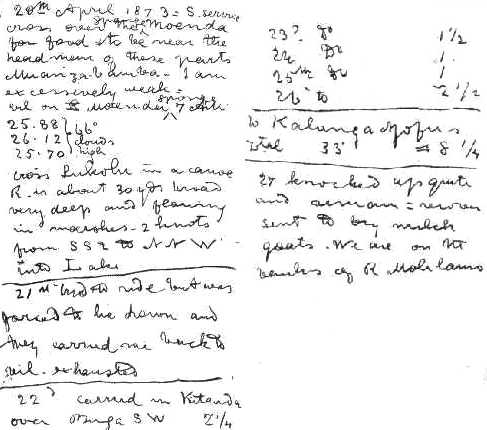 20th April 1873 = S. service
cross over the sponge Moenda
for food & to be near the
headman of these parts
Moanzabamba - I am
excessively weak =
vil on Moenda sponge 7 A M
25.88 } 66°
26.12 } clouds
25.70 } high
cross Lokolu in a canoe
R. is about 30 yds broad
very deep and flowing
in marshes - 2 knots
from SSE to NNW
into Lake
21st tried to ride but was
forced to lie down and
they carried me back to
vil. exhausted
22d carried in Kitanda
over Buga SW 2 1/4
23d Do 1 1/2
24 Do 1.
25th Do 1
26 to 2 1/2
to Kalunganjofu's
total 33' = 8 1/4
27 knocked up quite
and remain = recover
sent to buy milch
goats. We are on the
banks of R Molilamo